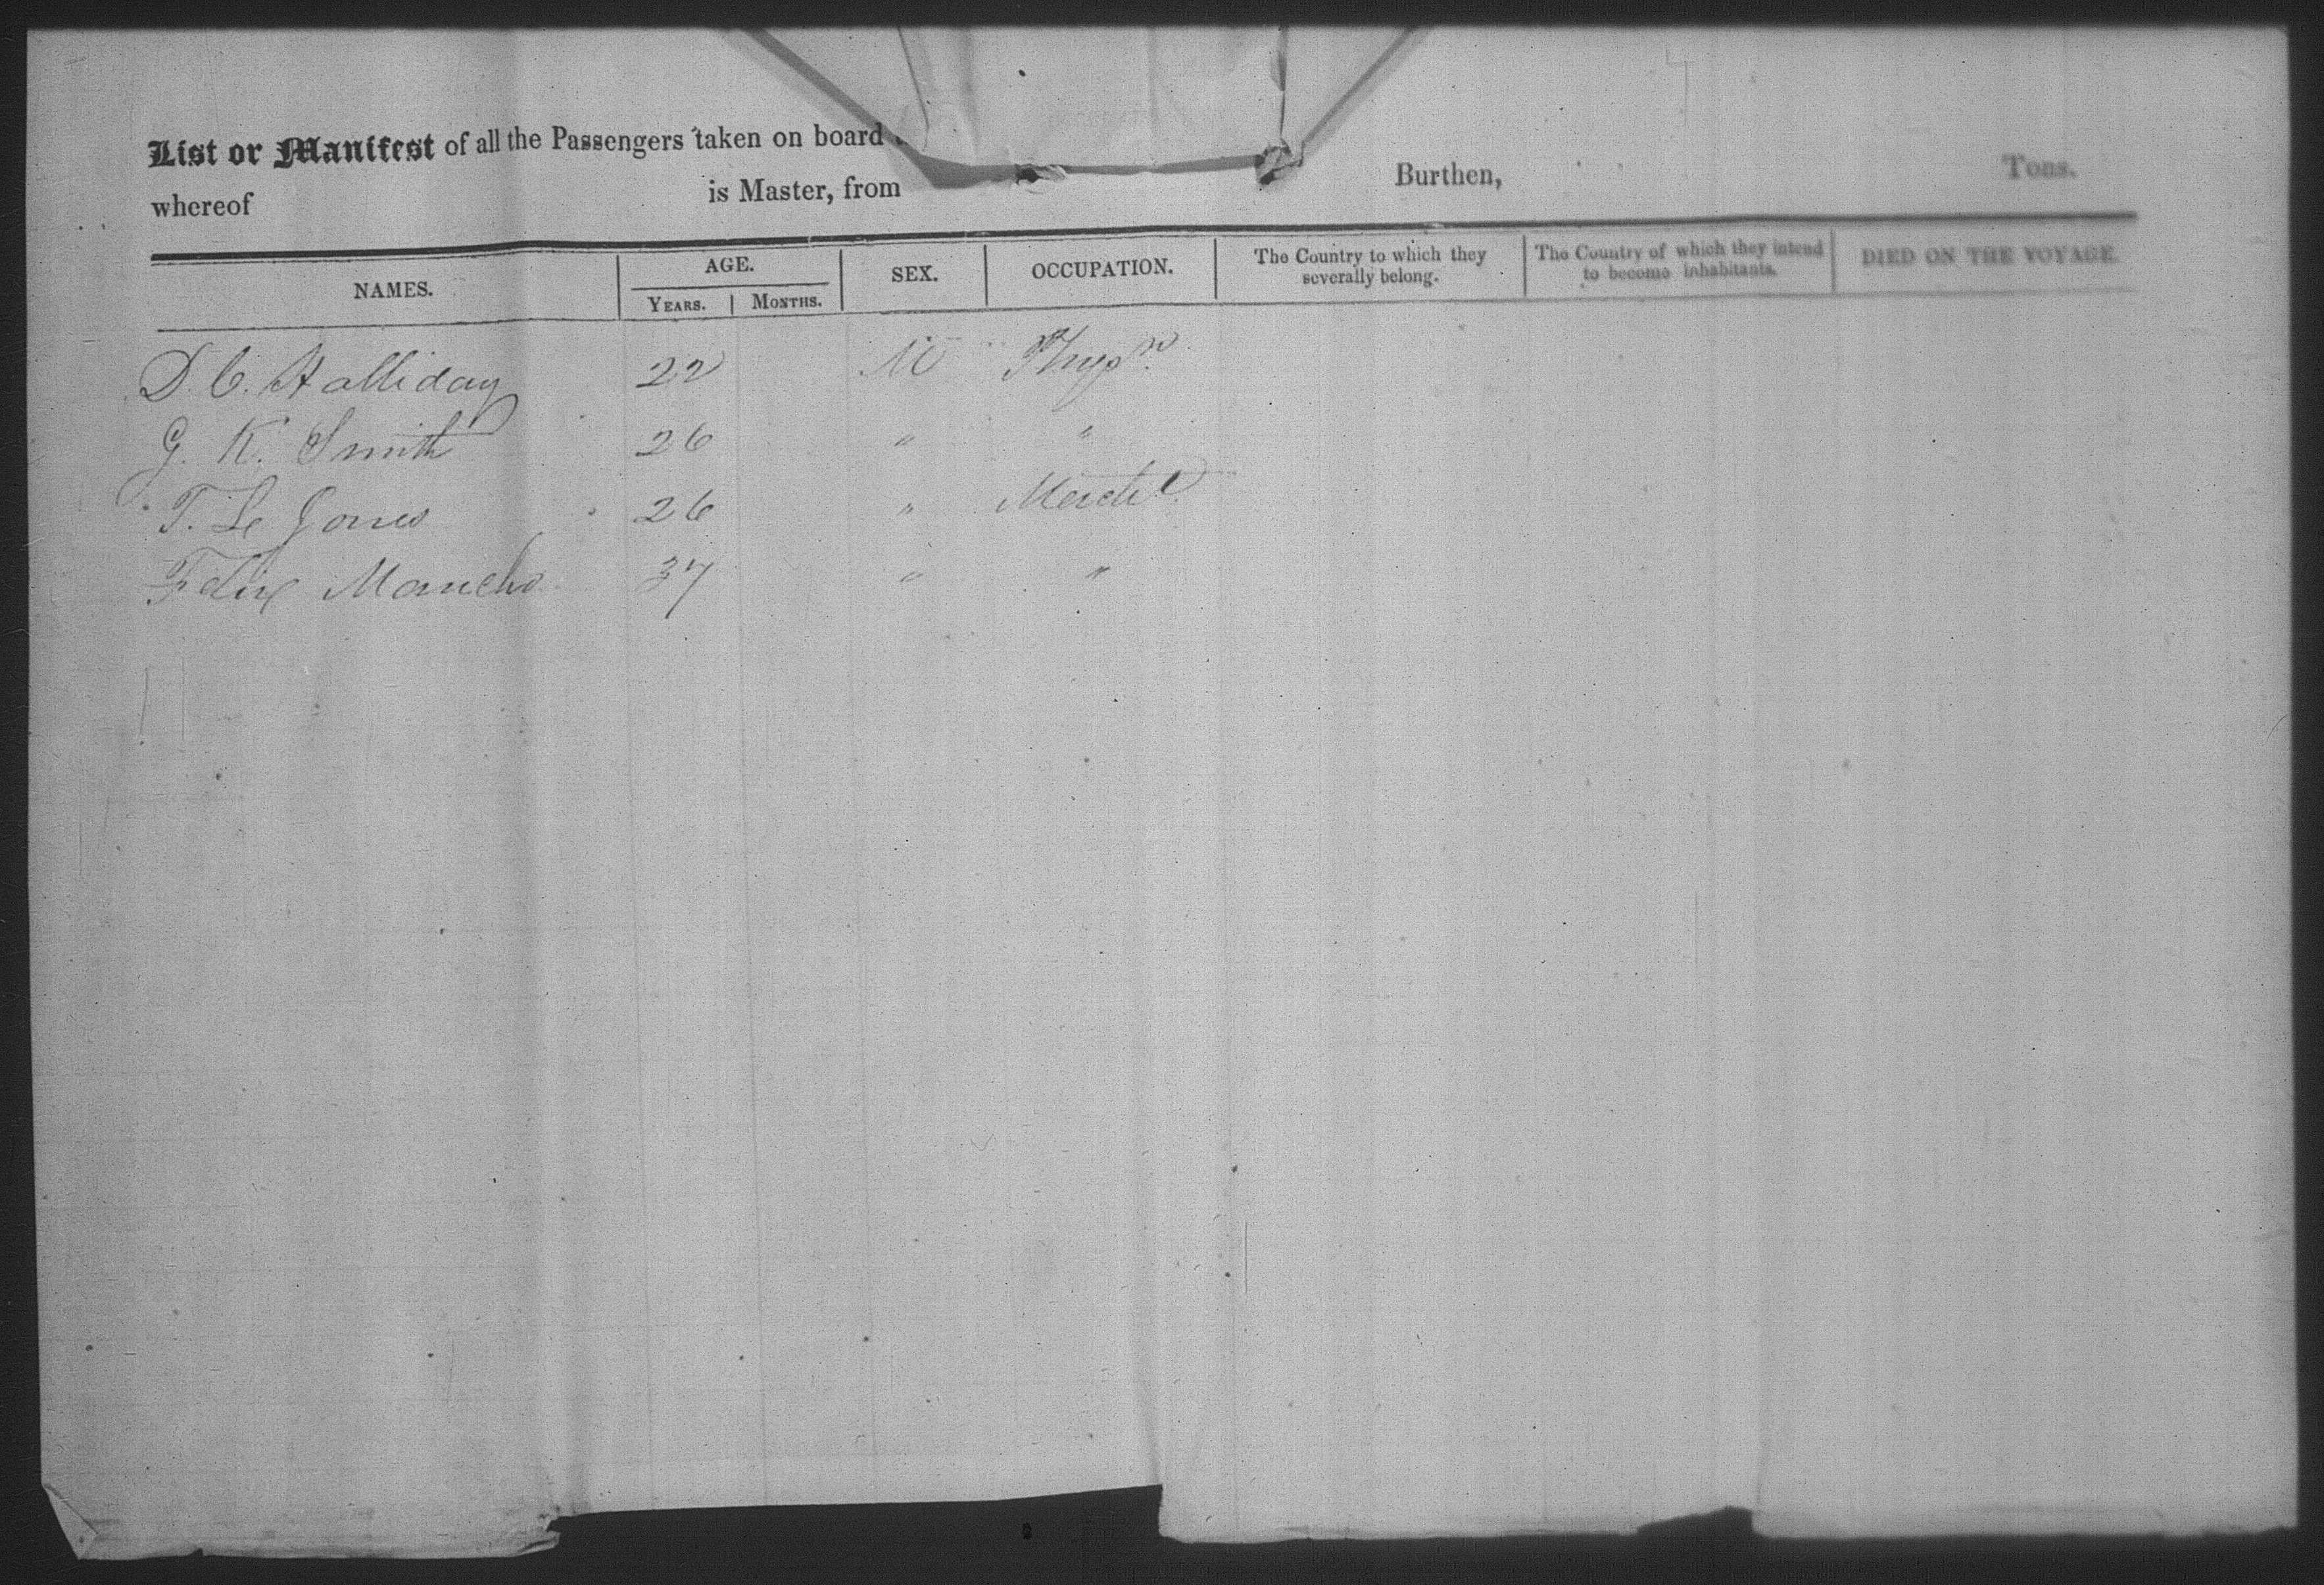 List or Manifest of all the Passengers taken on board
Burthen, Tons.
whereof is Master, from
NAMES. AGE. SEX. OCCUPATION. The Country to which they severally belong. The Country of which they intend to become inhabitants. DIED ON THE VOYAGE.
YEARS. MONTHS.
D. C. Halliday 22 M Phys n.
G. K. Smith 26 " "
T. Le Jones 26 "
Felix 37 " "